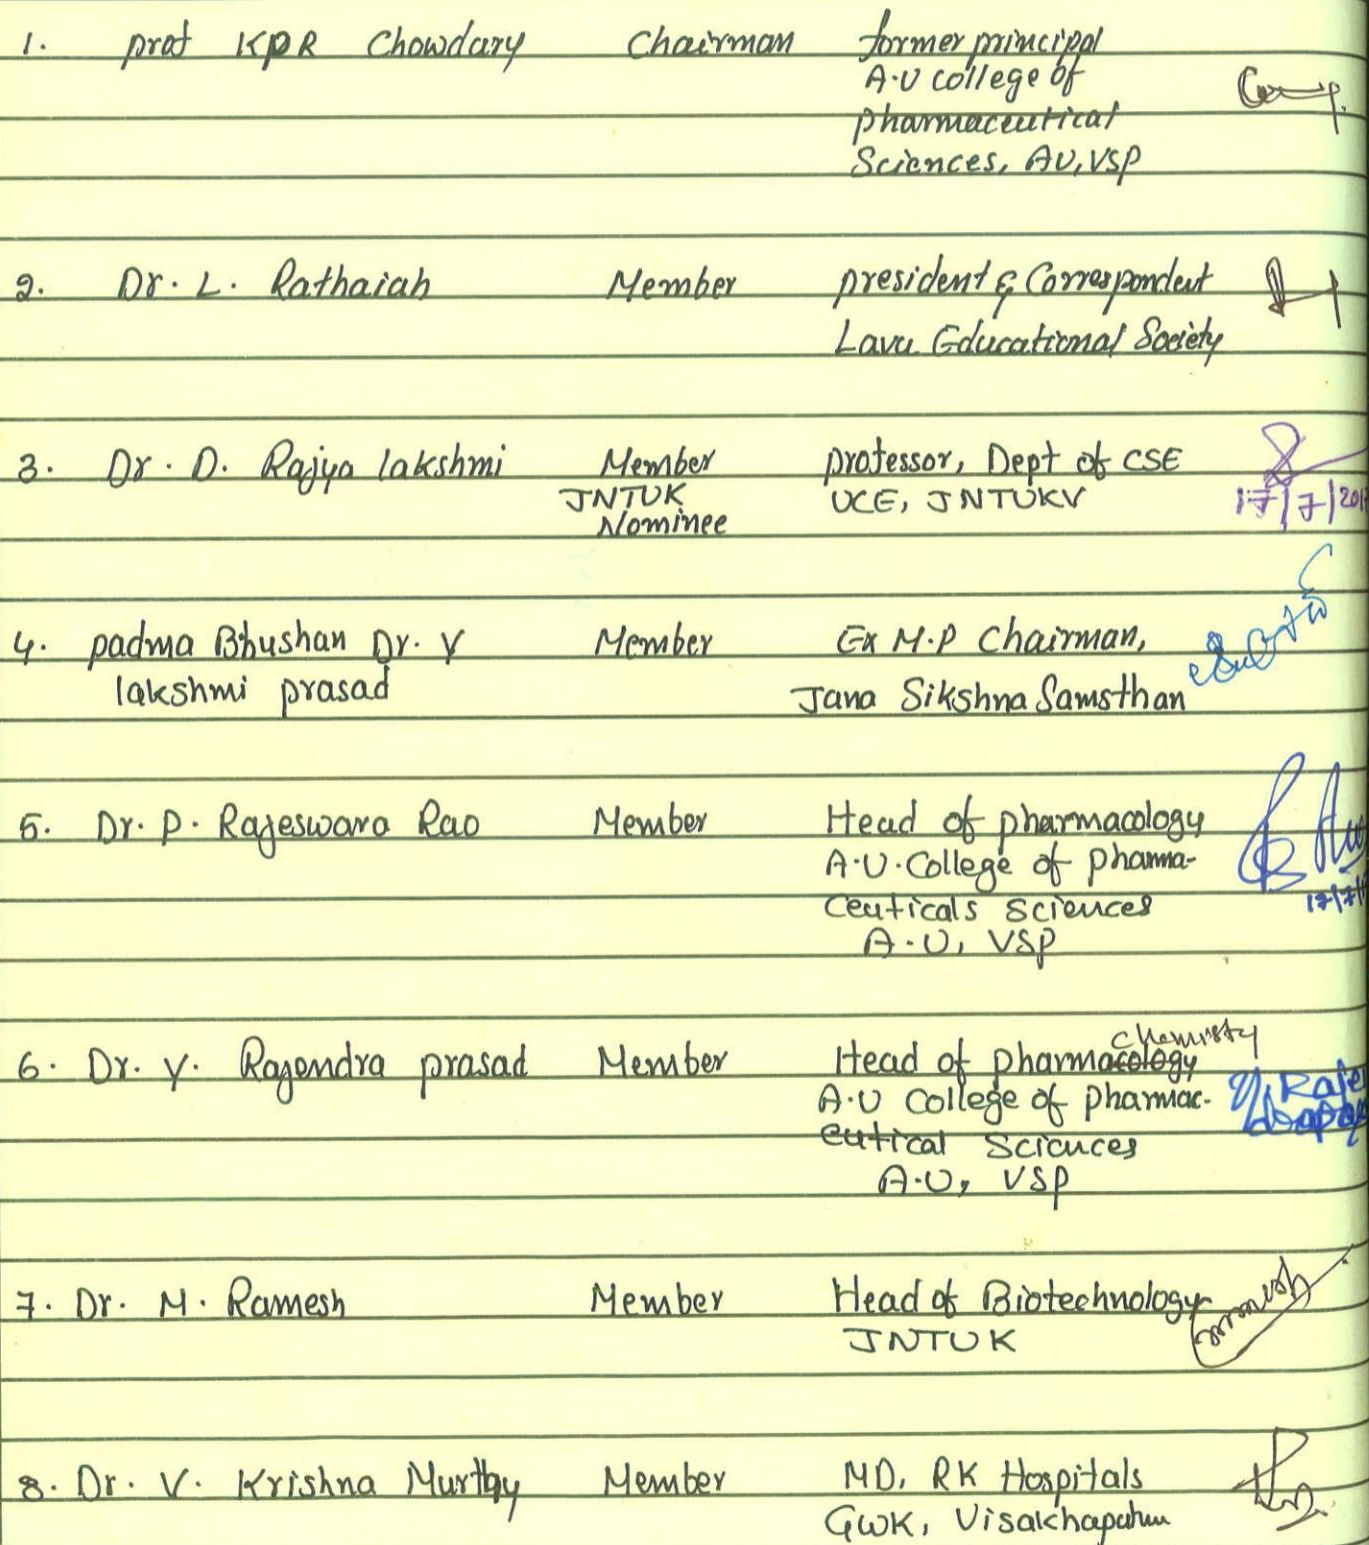 1. prof KPR Chowdary Chairman former principal
A.U college of
pharmaceutical
Sciences, AU, VSP
2. Dr. L. Rathaiah Member president & Correspondent
Lavu Educational Society
3. Dr. D. Rajya lakshmi Member professor, Dept of CSE
JNTUK UCE, JNTUKV
Nominee
17/7/201
4. padma Bhushan Dr. Y Member Ex M.P Chairman,
lakshmi prasad Jana Sikshna Samsthan
5. Dr. P. Rajeswara Rao Member Head of pharmacology
A.U. College of pharma-
ceuticals sciences
A.U, VSP
17/7/
chemistry
6. Dr. Y. Rajendra prasad Member Head of pharmacology
A.U College of pharmac-
eutical Sciences
A.U, VSP
7. Dr. M. Ramesh Member Head of Biotechnology
JNTUK
8. Dr. V. Krishna Murthy Member MD, RK Hospitals
GWK, Visakhapatnam